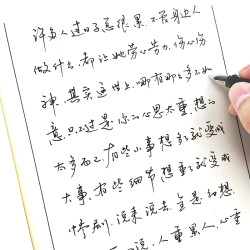 许多人过日子总很累,不管身边人
做什么,都让她劳心劳力,伤心伤
神,其实这世上哪有那么多不如
意,只不过是你的心思太重,想的
太多而已,有些小事想多了就变成
大事,有些细节想重了就变成
悲剧,说来说去,全是幻想
说,人重累人,心重